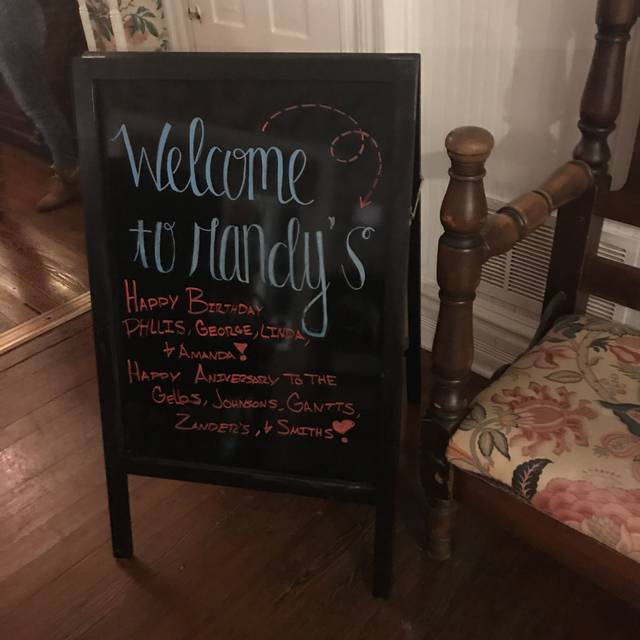 Welcome
to Mandy's
HAPPY BIRTHDAY
PHLLIS, GEORGE, LINDA,
& AMANDA!
HAPPY ANIVERSARY TO THE
GELBS, JOHNSONS, GANTTS,
ZANDER'S, & SMITHS!